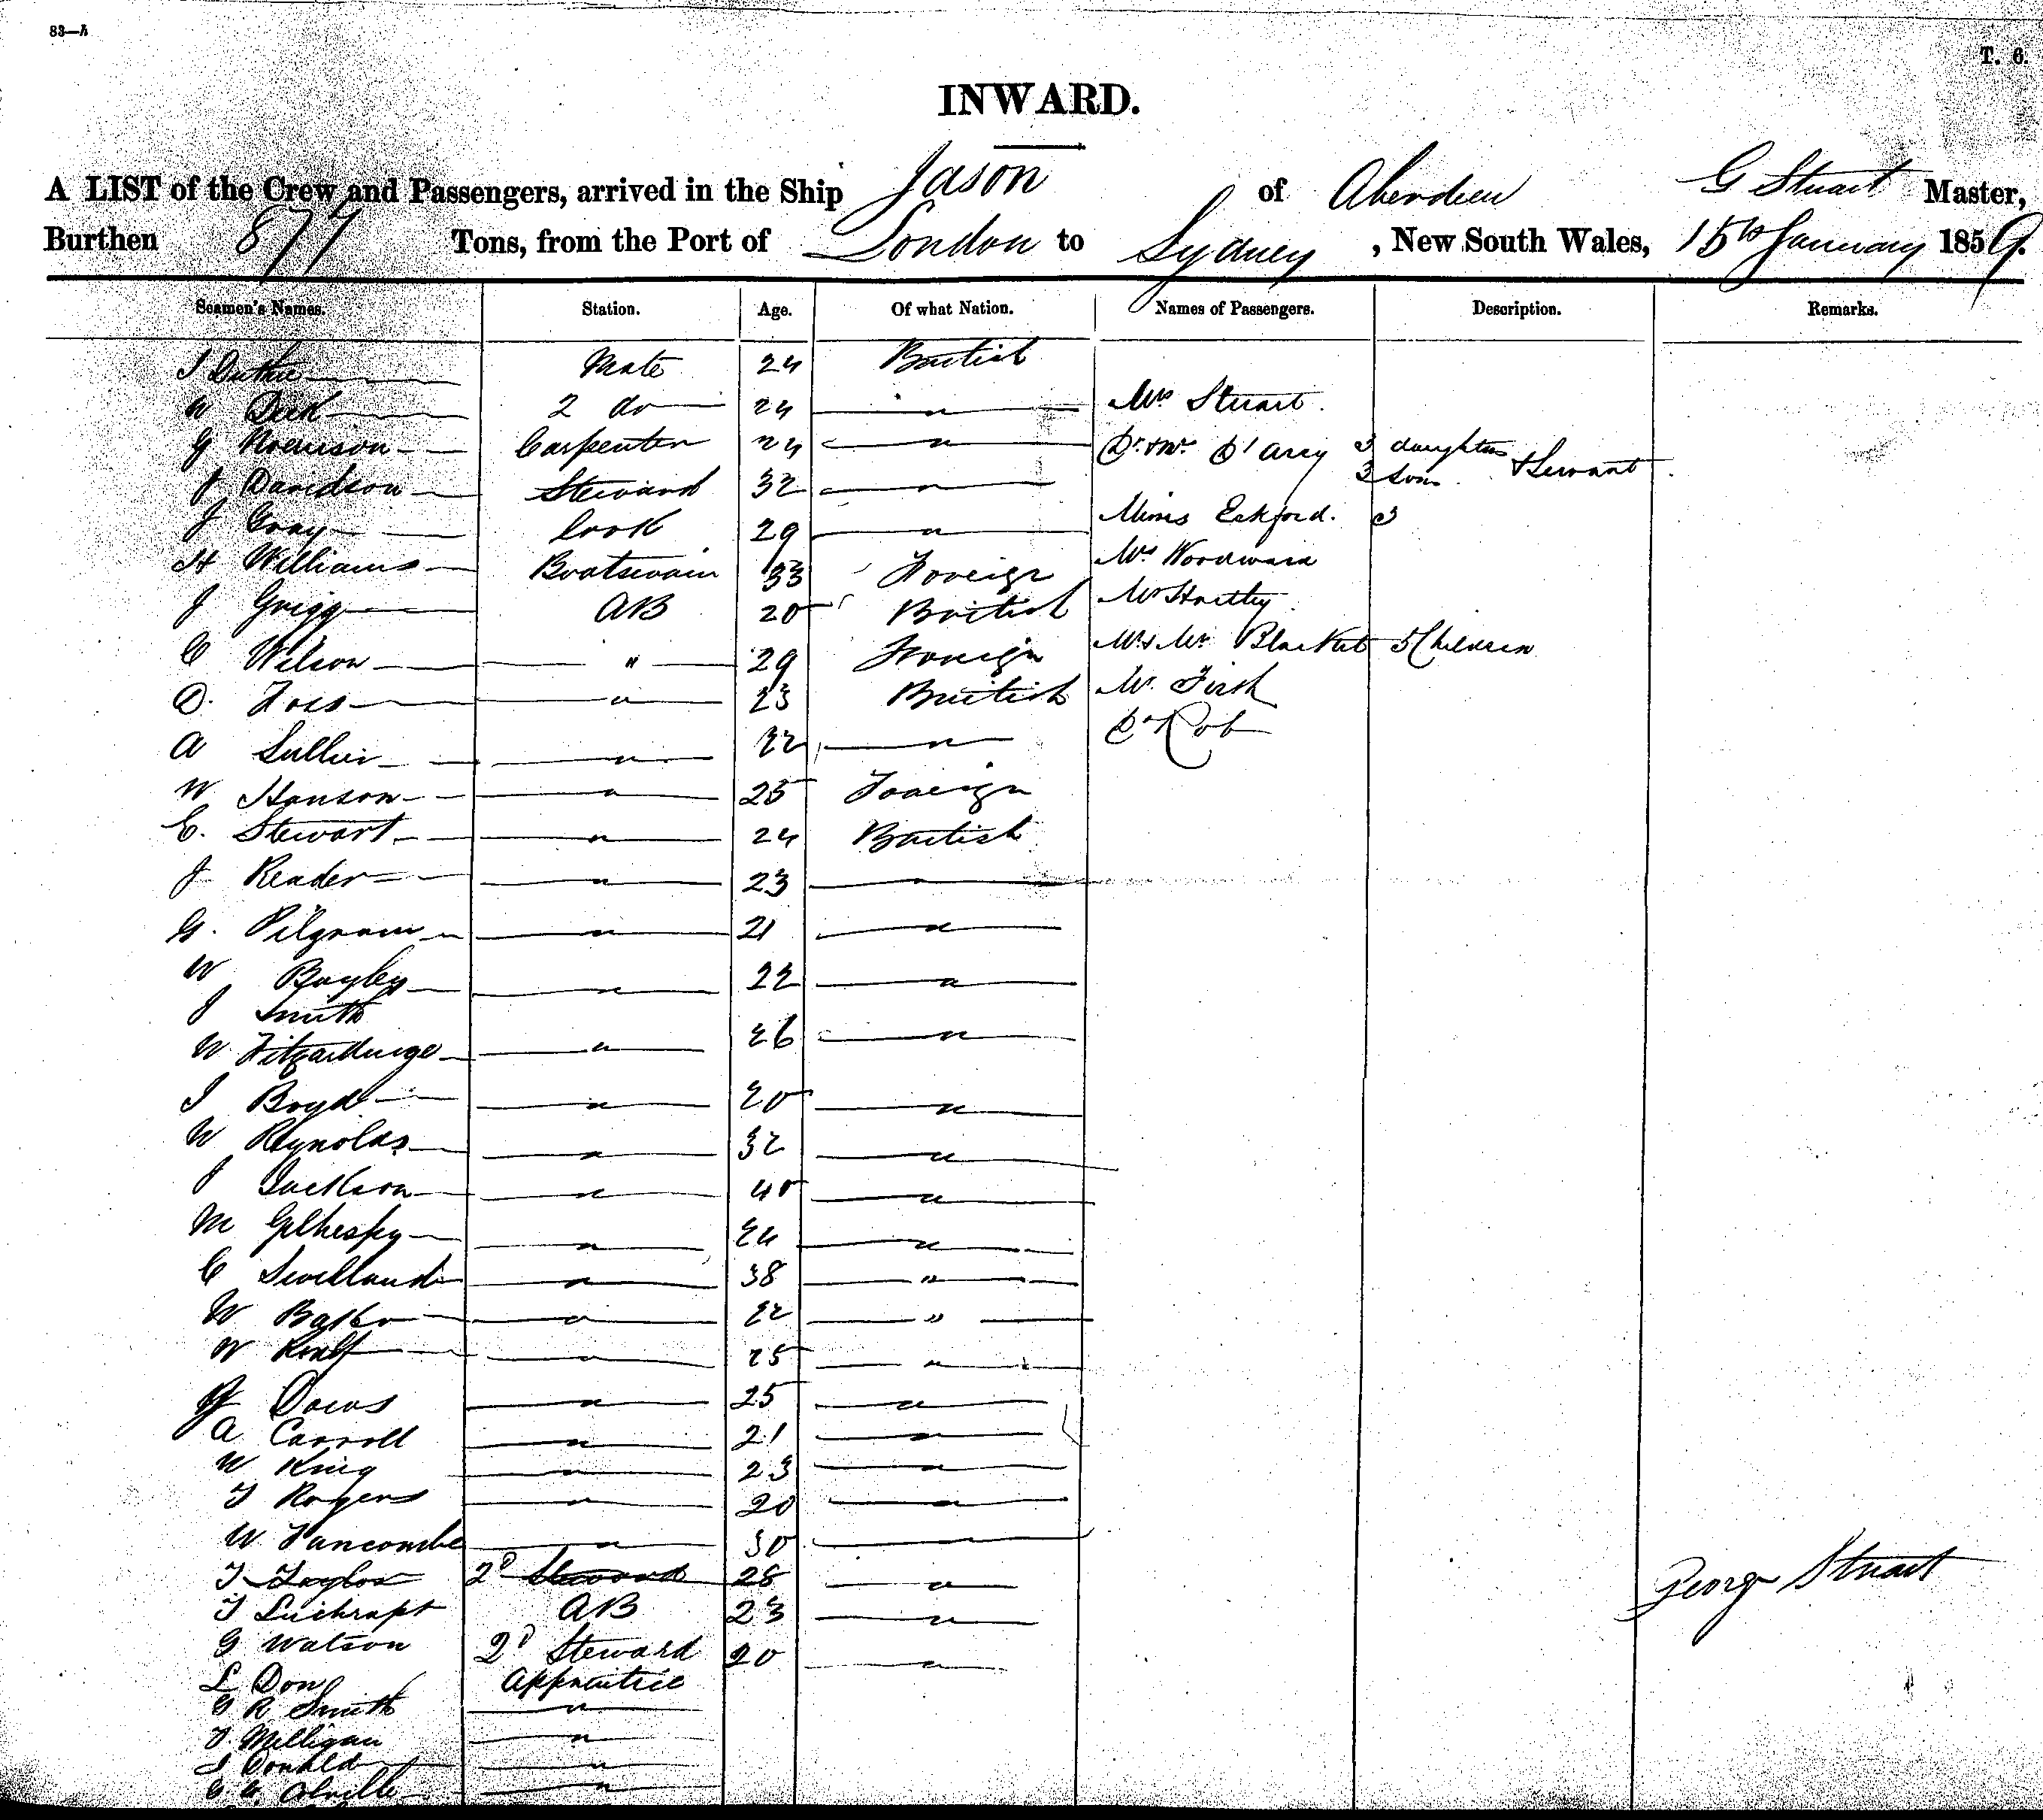 83—h
T. 6.
INWARD.
A LIST of the Crew and Passengers, arrived in the Ship Jason of Aberdeen G Stuart Master,
Burthen 877 Tons, from the Port of London to Sydney, New South Wales, 15th January 1859.
Seamen's Names. Station. Age. Of what Nation. Names of Passengers. Description. Remarks.
J Duthie Mate 24 British
W 2 do 24 " Mrs Stuart.
G Carpenter 24 " Dr. & Mrs. D'Arcy 3 daughters
J Davidson Steward 32 " 3 Sons & Servant
J Gray Cook 29 " Misses Eckford. 3
H Williams Boatswain 33 Foreign Mr Woodward
J Grigg AB 20 British Mr Hartley
C Wilson " 29 Foreign Mr & Mrs Blacket 5 Children
D. Foss " 23 British Mr. Firth
A " 22 " Dr Rob
W Hanson " 25 Foreign
C. Stewart " 24 British
J Reader " 23 "
G. Pilgram " 21 "
W Bayley " 22 "
J Smith
W Fitzhardinge " 26 "
J Boyd " 20 "
W Reynolds " 32 "
J Jackson " 40 "
M Gelhespy " 24 "
C " 38 "
W " 22 "
W " 25 "
G Daws " 25 "
A Carroll " 21 "
W King " 23 "
T Rogers " 20 "
W Hancombe " 30 "
T Taylor 2D Steward 28 "
T AB 23 "
G Watson 2D Steward 20 "
L Don Apprentice
G R Smith "
T. Milligan "
J Donald "
G. C. Colville "
George Stuart